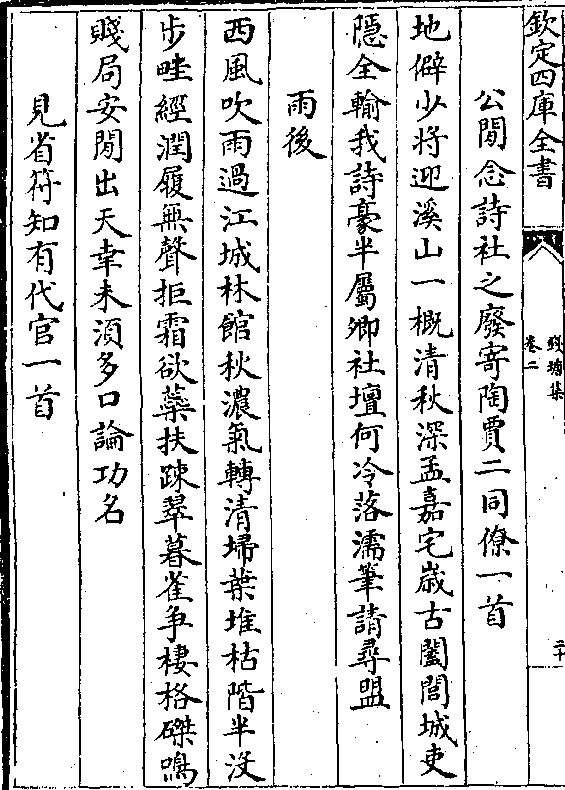 欽定四庫全書
錢塘集
卷二
二十
公閒念詩社之廢寄陶賈二同僚一首
地僻少將迎溪山一概清秋深孟嘉宅歳古闔閭城吏
隠全輸我詩豪半屬卿社壇何冷落濡筆請尋盟
雨後
西風吹雨過江城林館秋濃氣轉清埽葉堆枯階半沒
步畦經潤履無聲拒霜欲蘂扶踈翠暮雀争棲格磔鳴
賤局安閒出天幸未須多口論功名
見省符知有代官一首